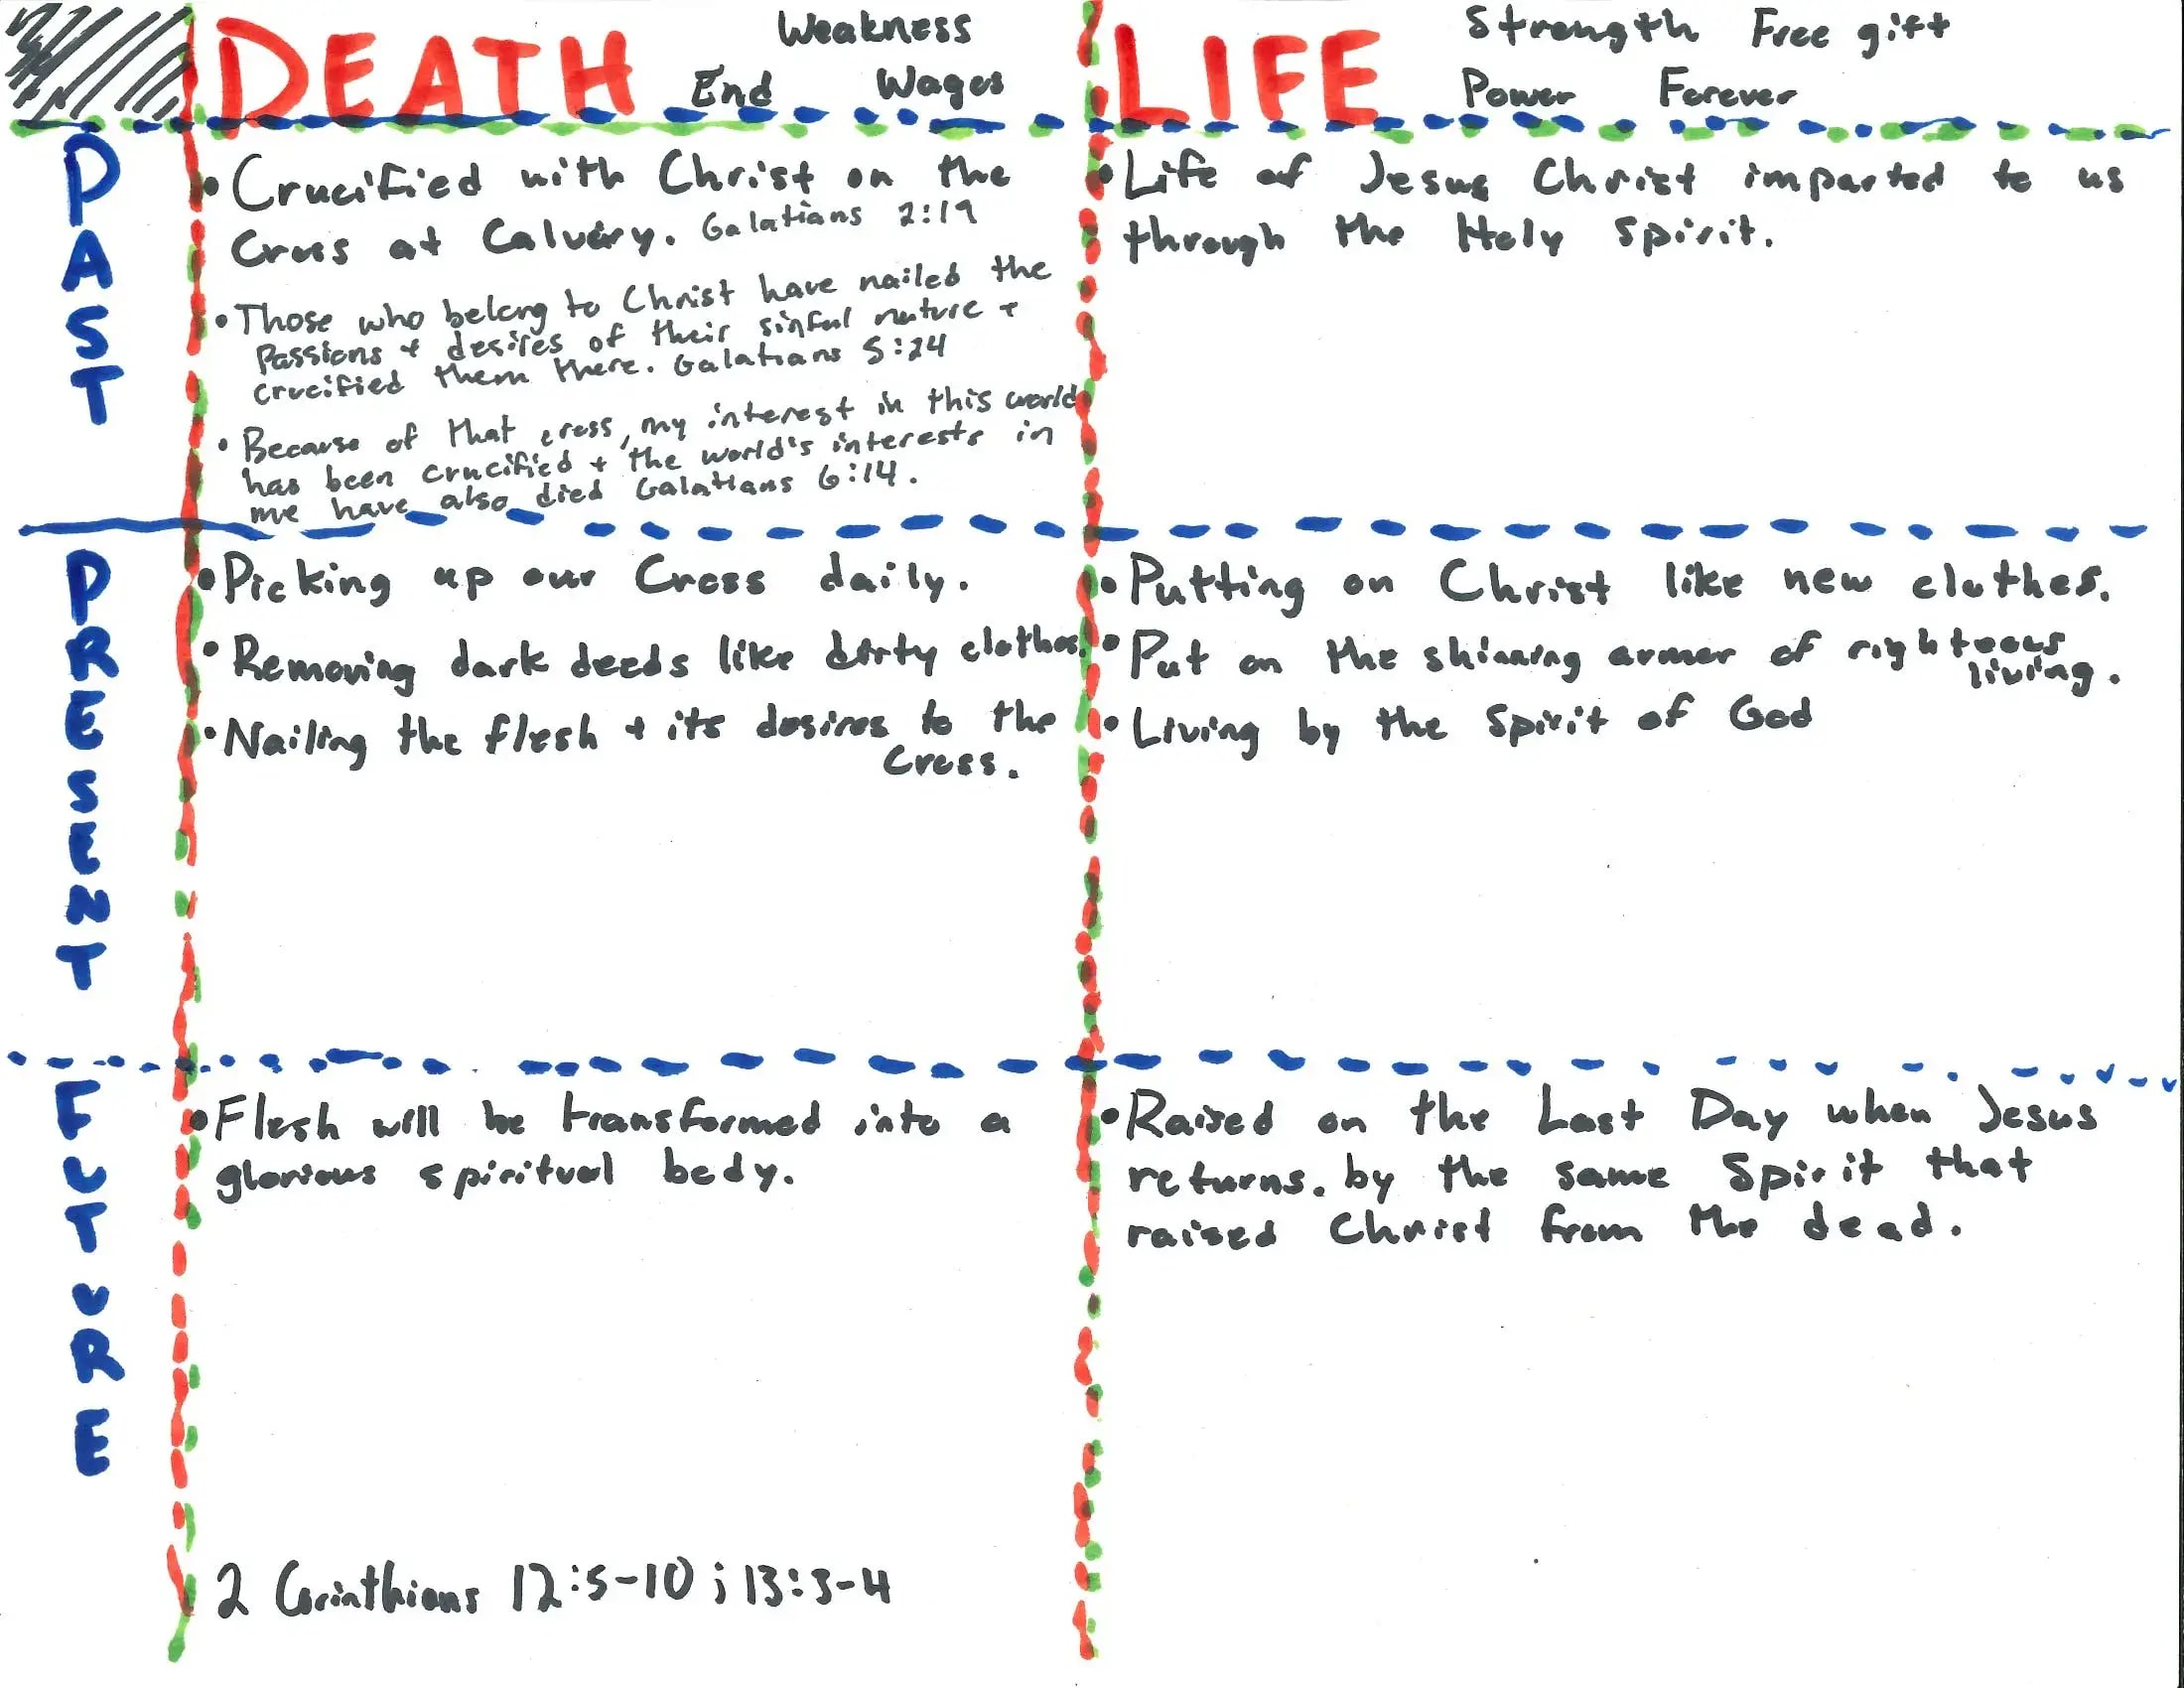 DEATH Weakness
End Wages
LIFE Strength Free gift
Power Forever
PAST
• Crucified with Christ on the
Cross at Calvary. Galatians 2:19
• Those who belong to Christ have nailed the
Passions + desires of their sinful nature +
crucified them there. Galatians 5:24
• Because of that cross, my interest in this world
has been crucified + the world's interests in
me have also died Galatians 6:14.
• Life of Jesus Christ imparted to us
through the Holy Spirit.
PRESENT
• Picking up our Cross daily.
• Removing dark deeds like dirty clothes.
• Nailing the flesh + its desires to the
Cross.
• Putting on Christ like new clothes.
• Put on the shinning armor of righteous
living.
• Living by the Spirit of God
FUTURE
• Flesh will be transformed into a
glorious spiritual body.
• Raised on the Last Day when Jesus
returns. by the same Spirit that
raised Christ from the dead.
2 Corinthians 12:5-10; 13:3-4